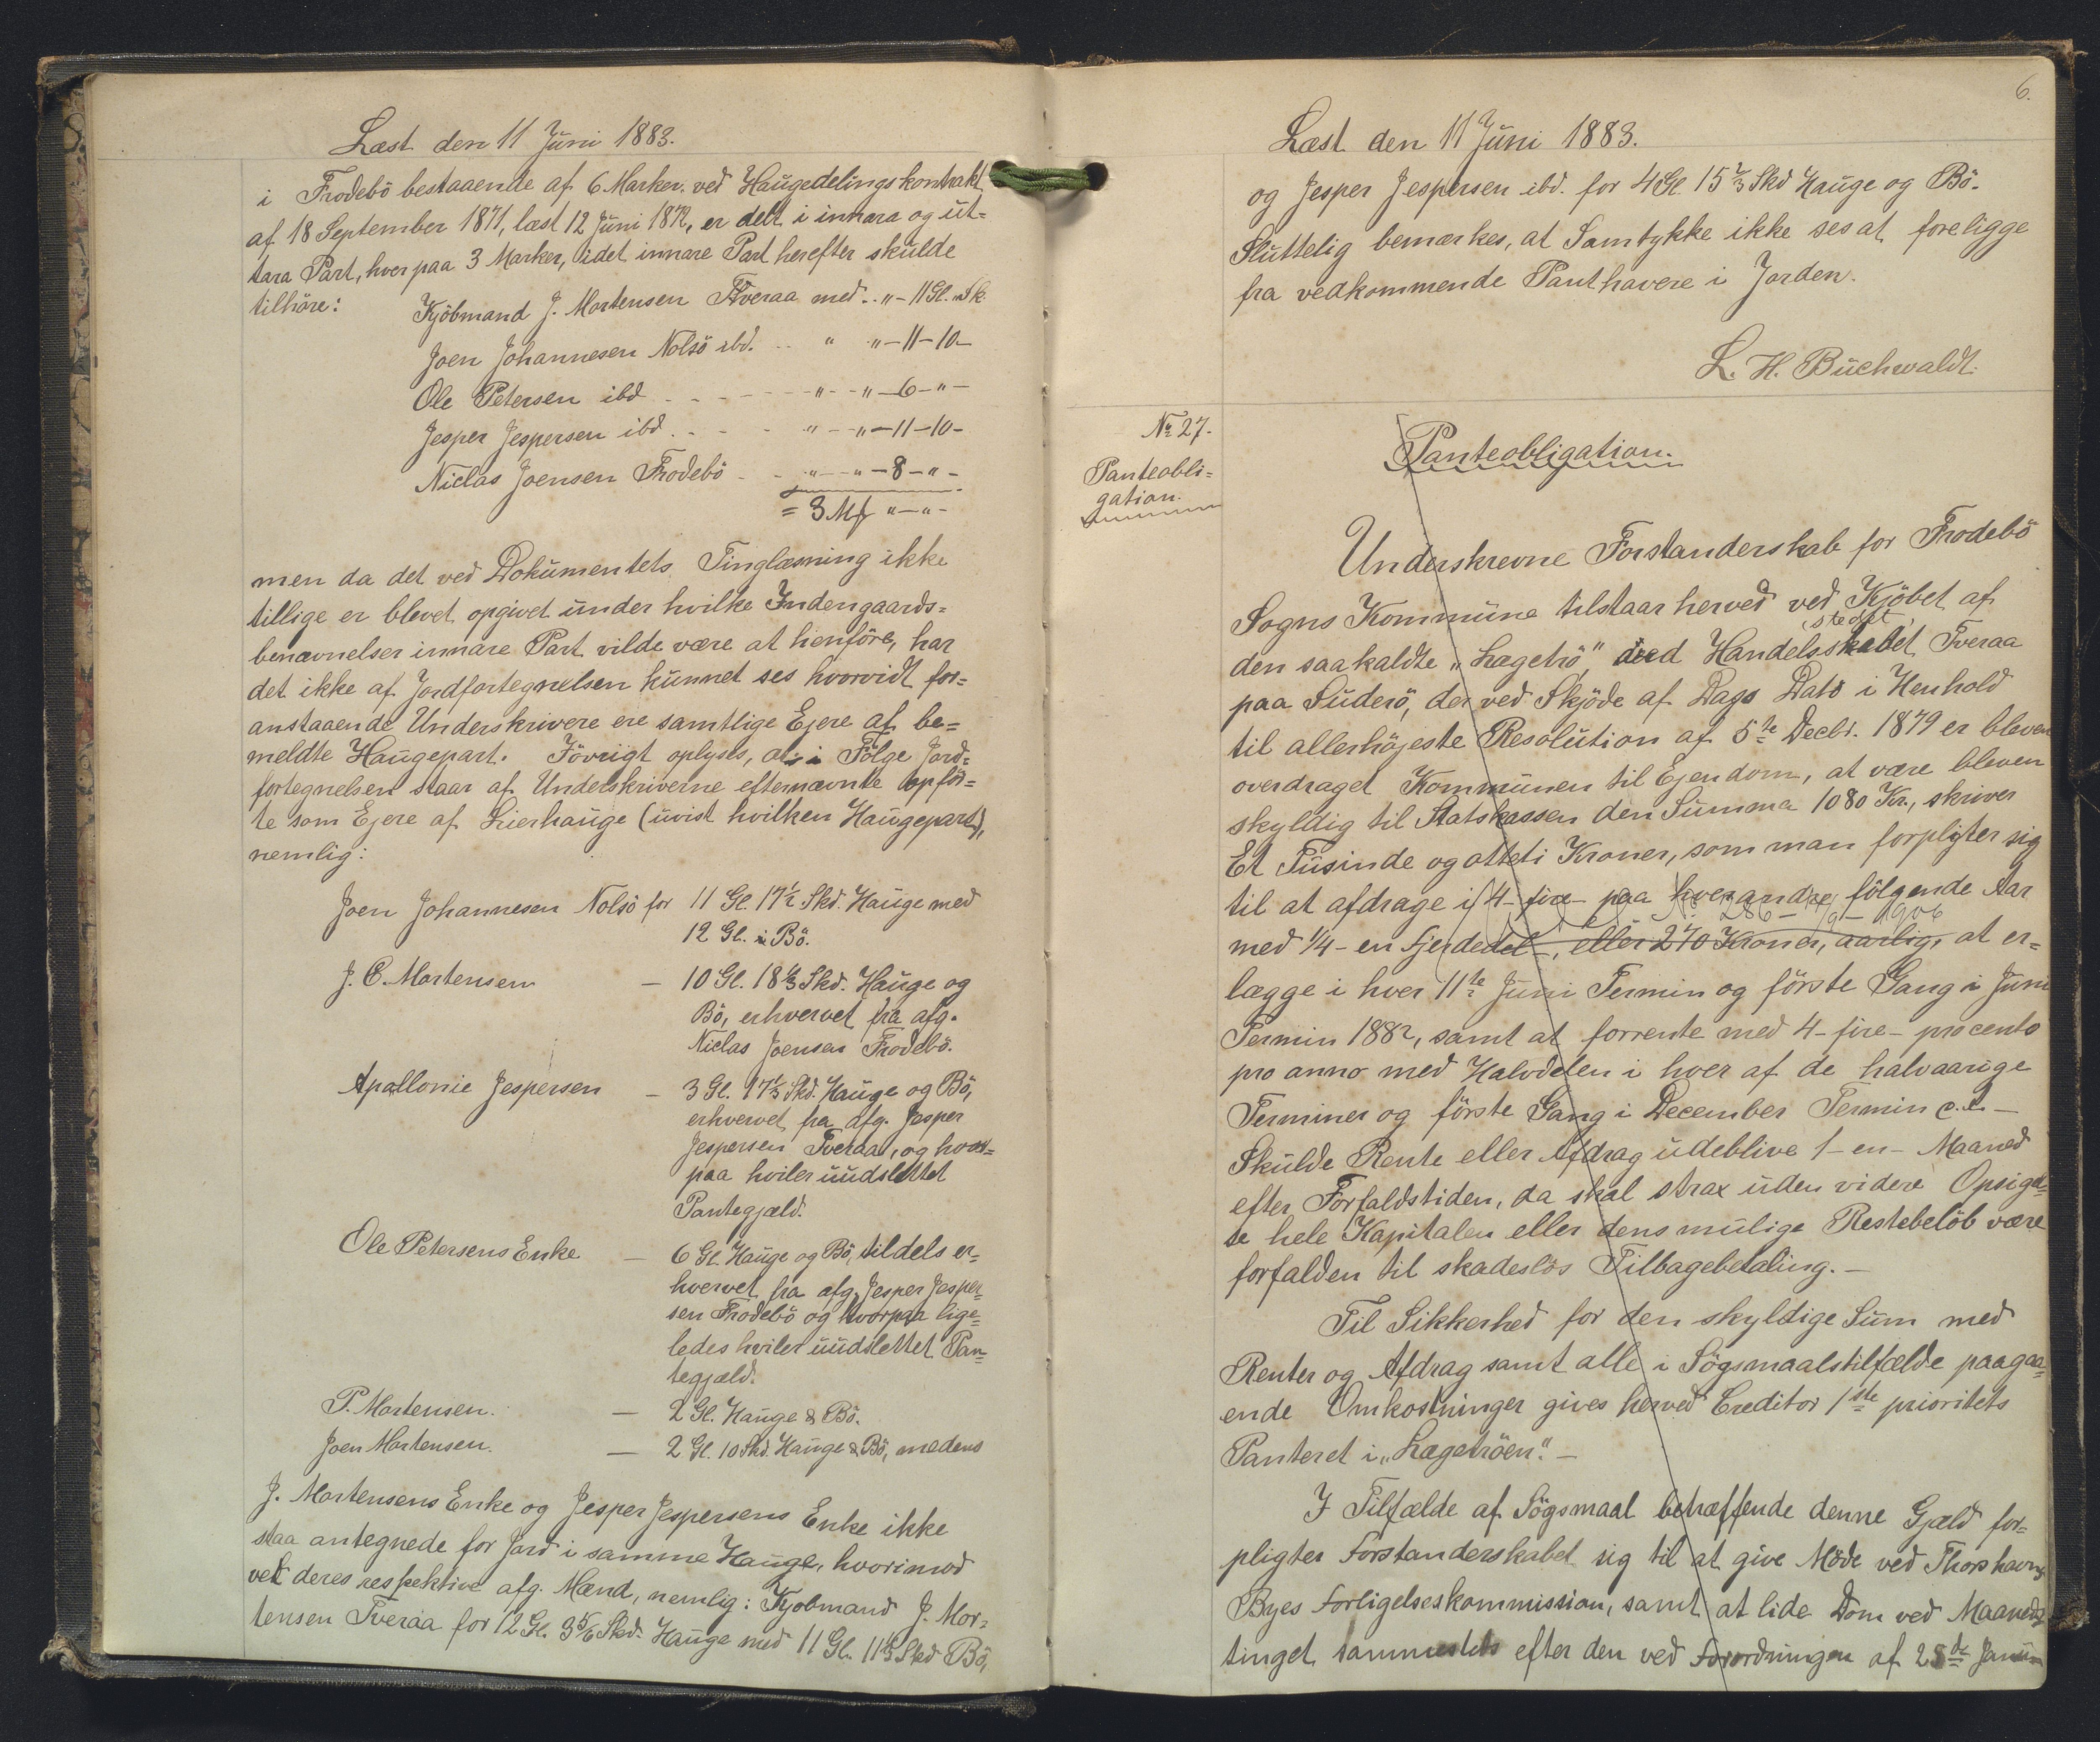 Læst den 11 Juni 1883.
i Frodebö bestaaende af 6 Marker. ved Haugedelingskontrakt
af 18 September 1871, læst 12 Juni 1872, er delt i innara og út-
tara Part, hver paa 3 Marker, idet innare Part herefter skulde
tilhöre:
Kjöbmand J. Mortensen Tveraa med .. " - 11 Gl. " Sk.
Joen Johannesen Nolsö ibd. .. " " - 11 - 10 -
Ole Petersen ibd - - - - - " - - " - 6 - " -
Jesper Jespersen ibd. - - - " - " - 11 - 10 -
Niclas Joensen Frodebö - - " - " - 8 - " -
= 3 Mk " - " -
men da det ved Dokumentets Tinglæsning ikke
tillige er blevet opgivet under hvilke Indengaards-
benævnelser innare Part vilde være at henföre, har
det ikke af Jordfortegnelsen kunnet ses hvorvidt for-
anstaaende Underskrivere ere samtlige Ejere af be-
meldte Haugepart. Jövrigt oplyses, at i Fölge Jord-
fortegnelsen staar af Underskriverne efternævnte opför-
te som Ejere af Lierhauge (uvist hvilken Haugepart),
nemlig:
Joen Johannesen Nolsö for 11 Gl. 17½ Skd. Hauge med
12 Gl. i Bö.
J. C. Mortensen — 10 Gl. 18⅓ Skd. Hauge og
Bö, erhvervet fra afg.
Niclas Joensen Frodebö.
Apallonie Jespersen — 3 Gl. 17⅓ Skd. Hauge og Bö,
erhvervet fra afg. Jesper
Jespersen Tveraa, og hvor-
paa hviler uudslettet
Pantegjæld.
Ole Petersens Enke — 6 Gl Hauge og Bö, tildels er-
hvervet fra afg. Jesper Jesper-
sen Frodebö og hvorpaa lige-
ledes hviler uudslettet Pan-
tegjæld.
P. Mortensen. — 2 Gl. Hauge & Bö.
Joen Mortensen. — 2 Gl. 10 Skd. Hauge & Bö, medens
J. Mortensens Enke og Jesper Jespersens Enke ikke
staa antegnede for Jord i samme Hauge, hvorimod
vel deres respektive afg. Mænd, nemlig: Kjöbmand J. Mor-
tensen Tveraa for 12 Gl. 3⅚ Skd. Hauge med 11 Gl. 11⅓ Skd Bö,
6.
Læst den 11 Juni 1883.
og Jesper Jespersen ibd. for 4 Gl 15⅔ Skd Hauge og Bö.
Sluttelig bemærkes, at Samtykke ikke ses at foreligge
fra vedkommende Panthavere i Jorden.
L. H. Buchwaldt.
No 27.
Panteobli-
gation.
Panteobligation.
Underskrevne Forstanderskab for Frodebö
Sogns Kommune tilstaar herved ved Kjöbet af
stedet
den saakaldte "Lægetrö", ved Handelsskabet Tveraa
paa Suderö, der ved Skjöde af Dags Dato i Henhold
til allerhöjeste Resolution af 5te Decbr. 1879 er bleven
overdraget Kommunen til Ejendom, at være bleven
skyldig til Statskassen den Summa 1080 Kr., skriver
Et Tusinde og otteti Kroner, som man forpligter sig
til at afdrage i 4 - fire - paa hverandre fölgende Aar
med ¼ - en fjerdedel -, eller 270 Kroner, aarlig, at er-
lægge i hver 11te Juni Termin og förste Gang i Juni
Termin 1882, samt at forrente med 4 - fire - procento
pro anno med Halvdelen i hver af de halvaarige
Terminer og förste Gang i December Termin c. a. —
Skulde Rente eller Afdrag udeblive 1 - en - Maaned
efter Forfaldstiden, da skal strax uden videre Opsigel-
se hele Kapitalen eller dens mulige Restebelöb være
forfalden til skadeslös Tilbagebetaling. —
Til Sikkerhed for den skyldige Sum med
Renter og Afdrag samt alle i Sögsmaalstilfælde paagaa-
ende Omkostninger gives herved Creditor 1ste prioritets
Panteret i "Lægetröen". —
I Tilfælde af Sögsmaal betræffende denne Gjæld for-
pligter Forstanderskabet sig til at give Möde ved Thorshavns
Byes Forligelseskommission, samt at lide Dom ved Maaneds-
tinget sammesteds efter den ved Forordningen af 25de Janu-